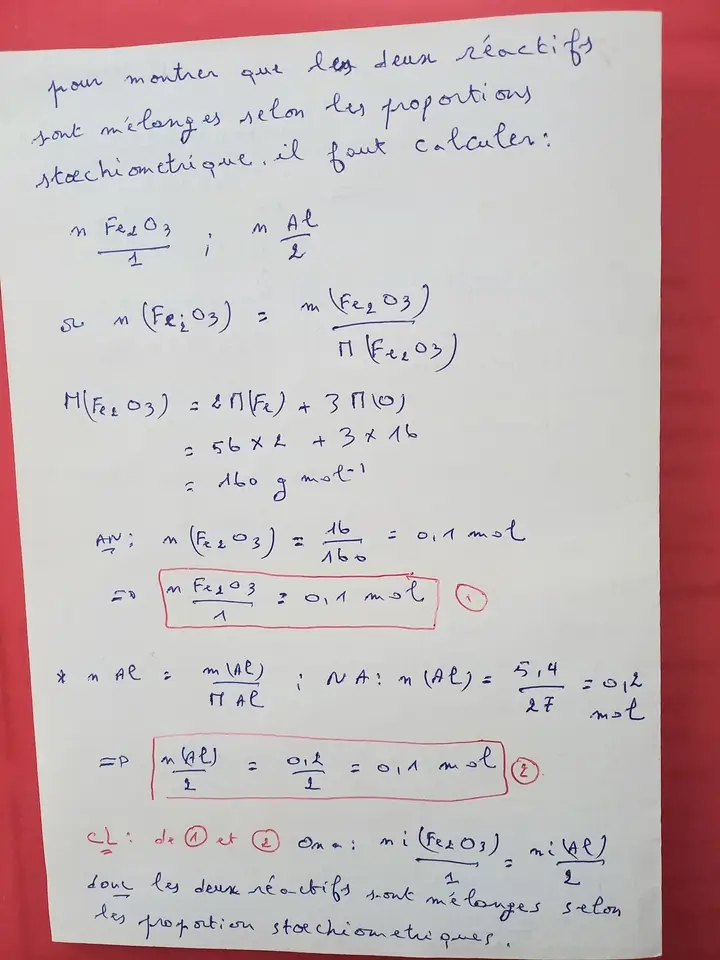 pour montrer que les deux réactifs
sont mélanges selon les proportions
stœchiometrique. il faut calculer:
n Fe2O3 / 1 ; n Al / 2
or n(Fe2O3) = m(Fe2O3) / M(Fe2O3)
M(Fe2O3) = 2M(Fe) + 3M(O)
= 56 × 2 + 3 × 16
= 160 g mol-1
AN: n(Fe2O3) = 16 / 160 = 0,1 mol
=> n Fe2O3 / 1 = 0,1 mol ①
* n Al = m(Al) / M Al ; NA: n(Al) = 5,4 / 27 = 0,2 mol
=> n(Al) / 2 = 0,2 / 2 = 0,1 mol ②
CL: de ① et ② On a: ni(Fe2O3) / 1 = ni(Al) / 2
donc les deux réactifs sont mélanges selon
les proportion stœchiometriques.